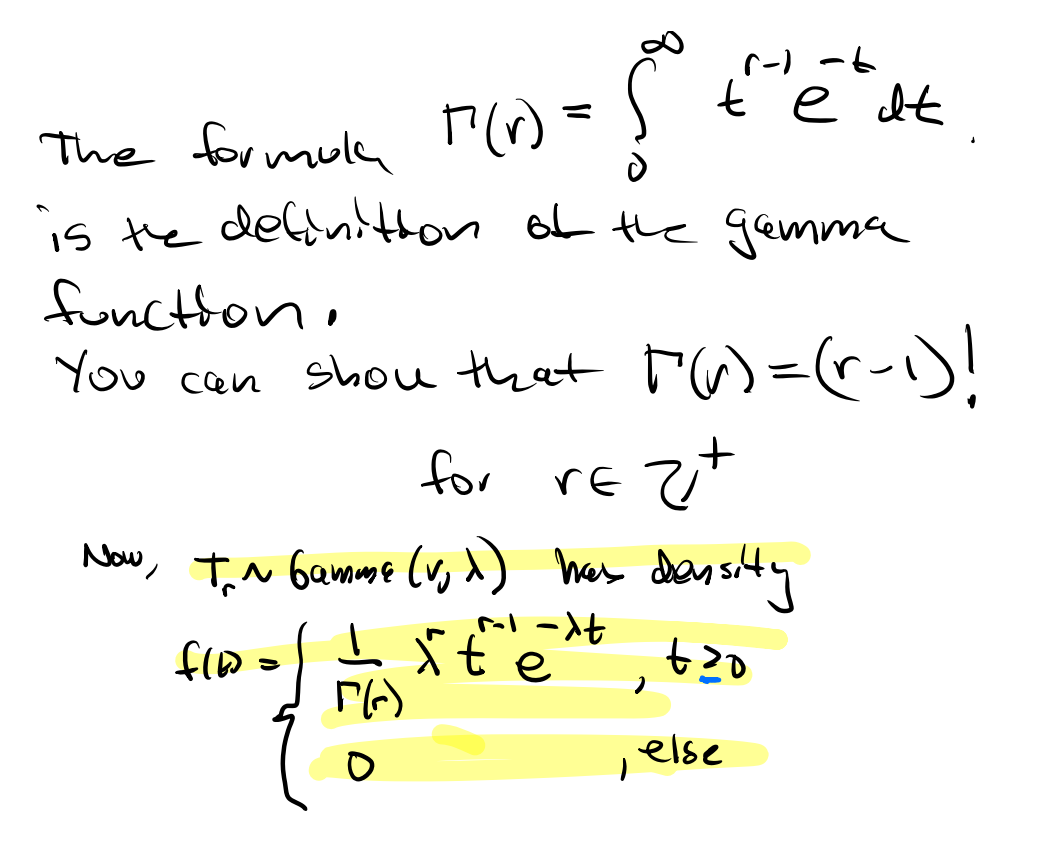 The formula Γ(r) = ∫₀^∞ t^{r-1} e^{-t} dt.
is the definition of the gamma
function.
You can show that Γ(r) = (r-1)!
for r ∈ ℤ⁺
Now, T_r ~ Gamma(r, λ) has density
f(t) = { 1/Γ(r) λ^r t^{r-1} e^{-λt}, t ≥ 0
0, else